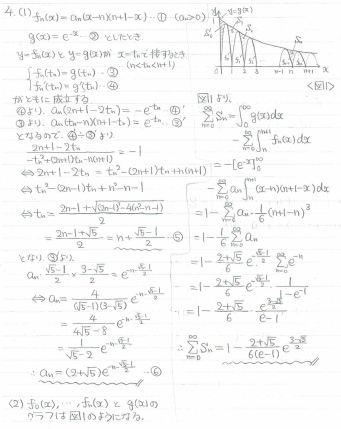 4. (1) fn(x) = an(x-n)(n+1-x) …① (an>0)
g(x) = e^-x …② としたとき
y=fn(x)とy=g(x)がx=tnで接するとき
(n<tn<n+1)
fn(tn) = g(tn) …③
fn'(tn) = g'(tn) …④
がともに成立する
④より, an(2n+1-2tn) = -e^-tn …④'
③より, an(tn-n)(n+1-tn) = e^-tn …③'
となるので, ④'÷③'より
(2n+1-2tn)/(-tn²+(2n+1)tn-n(n+1)) = -1
⇔ 2n+1-2tn = tn²-(2n+1)tn+n(n+1)
⇔ tn²-(2n-1)tn+n²-n-1
⇔ tn = (2n-1+√((2n-1)²-4(n²-n-1)))/2
= (2n-1+√5)/2 = n+(√5-1)/2 …⑤
となり, ③'より,
an·(√5-1)/2×(3-√5)/2 = e^(-n-(√5-1)/2)
⇔ an = 4/((√5-1)(3-√5)) e^(-n-(√5-1)/2)
= 4/(4√5-8) e^(-n-(√5-1)/2)
= 1/(√5-2) e^(-n-(√5-1)/2)
∴ an = (2+√5)e^(-n-(√5-1)/2) …⑥
(2) f0(x), …, fn(x) と g(x)の
グラフは図1のようになる.
y
y=g(x)
1
S0
S1
S2
Sn
0 1 2 3 n-1 n n+1 x
<図1>
図1より,
∞Σn=0 Sn = ∫0^∞ g(x)dx
- ∞Σn=0 ∫n^n+1 fn(x)dx
= -[e^-x]0^∞
- ∞Σn=0 an ∫n^n+1 (x-n)(n+1-x)dx
= 1 - ∞Σn=0 an·1/6(n+1-n)³
= 1 - 1/6 ∞Σn=0 an
= 1 - (2+√5)/6 e^(-(√5-1)/2) ∞Σn=0 e^-n
= 1 - (2+√5)/6 e^(-(√5-1)/2) · 1/(1-e^-1)
= 1 - (2+√5)/6 · e^((3-√5)/2)/(e-1)
∴ ∞Σn=0 Sn = 1 - (2+√5)/(6(e-1)) e^((3-√5)/2)